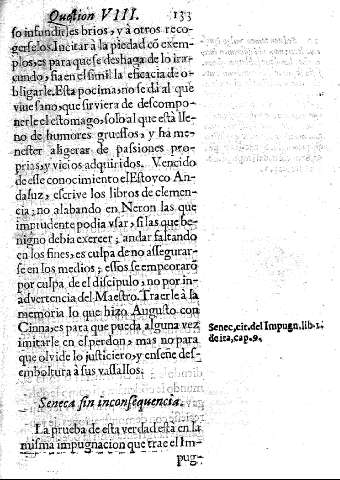 Question VIII. 133
so infundirles brios, y à otros reco-
gerselos. Incitar à la piedad cõ exem-
plos, es para que se deshaga de lo ira-
cundo, fia en el simil la eficacia de o-
bligarle. Esta pocima, no se dà al que
viue sano, que sirviera de descompo-
nerle el estomago, solo al que està lle-
no de humores gruessos, y ha me-
nester aligerar de passiones pro-
prias, y vicios adquiridos. Vencido
de esse conocimiento el Estoyco An-
daluz, escrive los libros de clemen-
cia; no alabando en Neron las que
imprudente podia vsar, si las que be-
nigno debia exercer; andar faltando
en los fines, es culpa de no assegurar-
se en los medios; essos se empeoraró
por culpa de el discipulo, no por in-
advertencia del Maestro. Traerle à la
memoria lo que hizo Augusto con
Cinna, es para que pueda alguna vez
imitarle en el perdon, mas no para
que olvide lo justiciero, y enseñe des-
emboltura à sus vassallos.
Senec, cit. del Impugn. lib. 1.
de ira, cap. 9.
Seneca sin inconsequencia.
La prueba de esta verdad està en la
misma impugnacion que trae el Im-
pug-